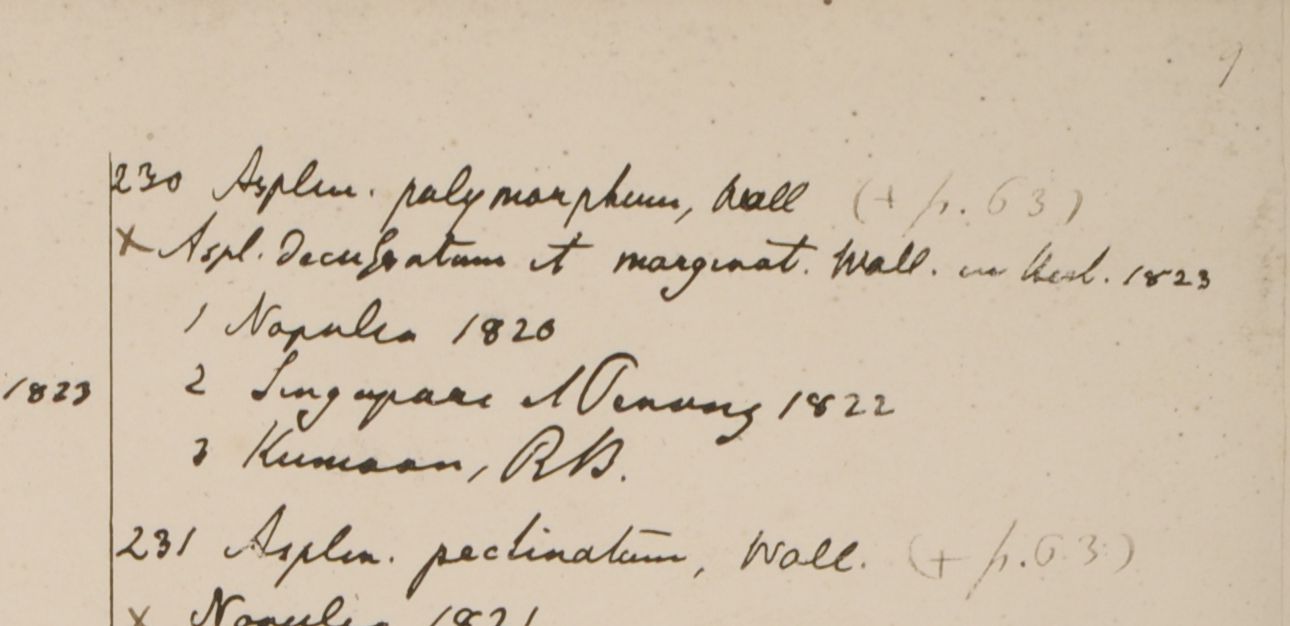 9
230 Asplen. polymorphum, Wall (+ p. 63)
× Aspl. decussatum et marginat. Wall. in Herb. 1823
1 Napulia 1820
1823 2 Singapore et Penang 1822
3 Kumaon, RB.
231 Asplen. pectinatum, Wall. (+ p. 63)
× Napulia 1821